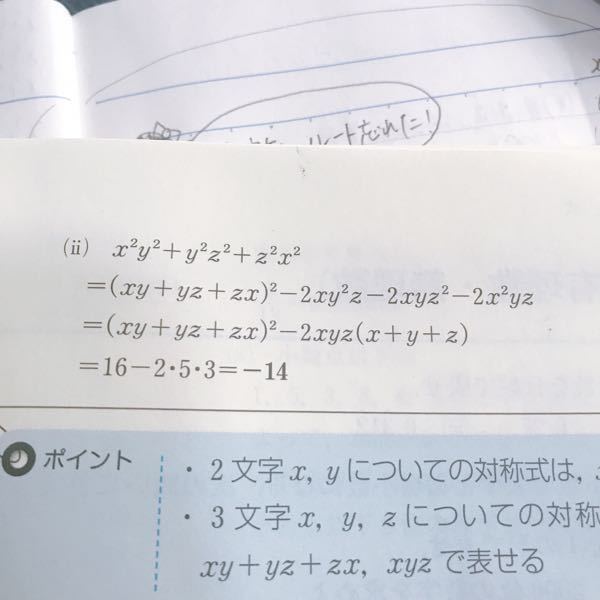 ルート忘れたに!
(ii) x²y²+y²z²+z²x²
=(xy+yz+zx)²−2xy²z−2xyz²−2x²yz
=(xy+yz+zx)²−2xyz(x+y+z)
=16−2・5・3=−14
ポイント
・2文字x, yについての対称式は,
・3文字x, y, zについての対称
xy+yz+zx, xyzで表せる